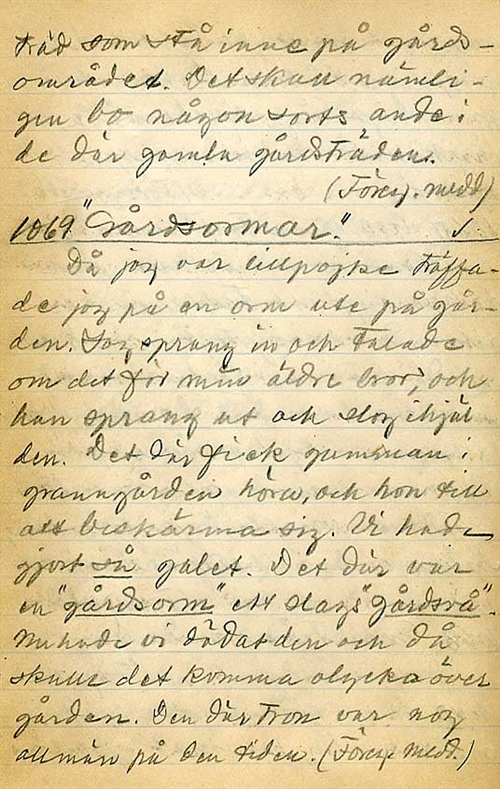 träd som stå inne på gårds-
området. Det skall nämli-
gen bo någon sorts ande i
de där gamla gårdsträden.
(Föreg. medd)
1069 "Gårdsormar."
Då jag var lillpojke träffa-
de jag på en orm ute på går-
den. Jag sprang in och talade
om det för min äldre bror, och
han sprang ut och slog ihjäl
den. Det där fick gumman i
granngården höra, och hon till
att beskärma sig. Vi hade
gjort så galet. Det där var
en "gårdsorm" ett slags "gårdsrå".
Nu hade vi dödat den och då
skulle det komma olycka över
gården. Den där tron var nog
allmän på den tiden. (Föreg. medd.)